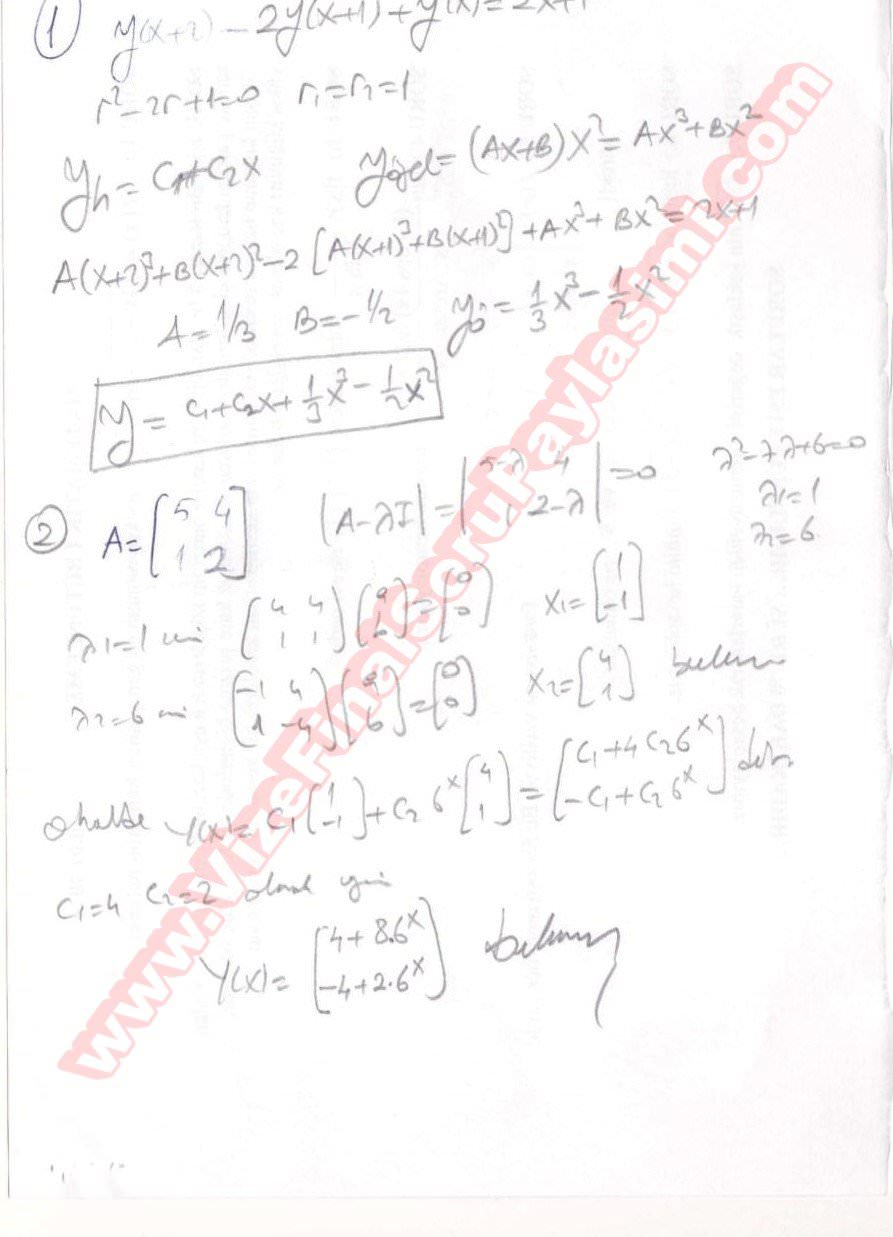 ① y(x+2) - 2y(x+1) + y(x) = 2x+1
r² - 2r + 1 = 0 r₁ = r₂ = 1
yh = C₁ + C₂x yöd = (Ax+B)x² = Ax³ + Bx²
A(x+2)³ + B(x+2)² - 2[A(x+1)³ + B(x+1)²] + Ax³ + Bx² = 2x+1
A = 1/3 B = -1/2 yö = 1/3 x³ - 1/2 x²
y = C₁ + C₂x + 1/3 x³ - 1/2 x²
② A = [5 4; 1 2] |A-λI| = |5-λ 4; 1 2-λ| = 0 λ² - 7λ + 6 = 0
λ₁ = 1
λ₂ = 6
λ₁ = 1 için (4 4; 1 1)(a; b) = (0; 0) X₁ = [1; -1]
λ₂ = 6 için (-1 4; 1 -4)(a; b) = (0; 0) X₂ = [4; 1] bulunur
O halde Y(x) = C₁[1; -1] + C₂ 6ˣ [4; 1] = [C₁ + 4C₂6ˣ; -C₁ + C₂6ˣ]
C₁ = 4 C₂ = 2 olmak
Y(x) = [4 + 8.6ˣ; -4 + 2.6ˣ] bulunur
www.VizeFinalSoruPaylasimi.com